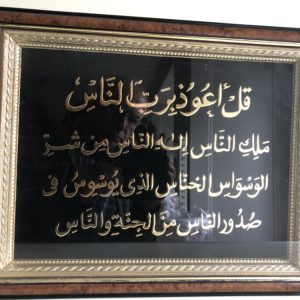 قُلْ اَعُوذُ بِرَبِّ النَّاسِ
مَلِكِ النَّاسِ اِلهِ النَّاسِ مِن شَرِّ
الوَسْوَاسِ الخنَّاسِ الذى يُوَسْوِسُ فى
صُدُورِ النَّاسِ مِنَ الجِنَّةِ وَالنَّاسِ